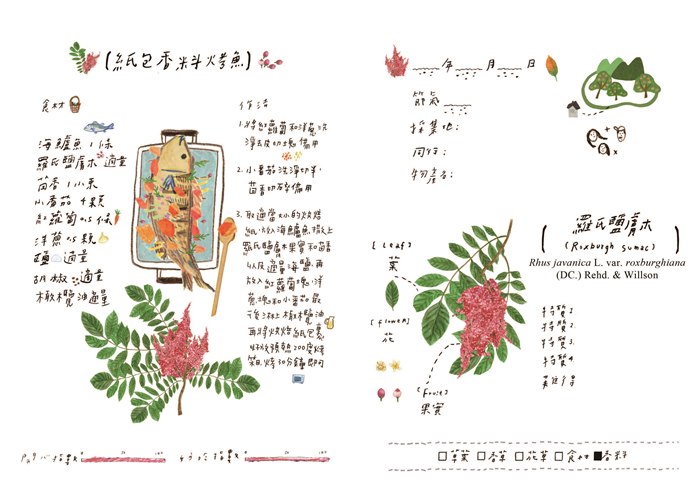 (紙包香料烤魚)
食材
海鱸魚1條
羅氏鹽膚木 適量
茴香1小束
小番茄4顆
紅蘿蔔0.5條
洋蔥0.5顆
鹽 適量
胡椒 適量
橄欖油適量
作法
1.將紅蘿蔔和洋蔥洗
淨去皮切塊備用
2.小番茄洗淨切半,
茴香切碎備用
3.取適當大小的烘焙
紙,放入海鱸魚,撒上
羅氏鹽膚木果實和茴香
以及適量海鹽,再
放入紅蘿蔔塊、洋
蔥塊和小番茄最
後淋上橄欖油
再將烘焙紙包裹
好放預熱200度烤
箱,烤30分鐘即可
指數
0 50 100
指數
0 50 100
年 月 日
節氣
採集地:
同行:
物產:
x
羅氏鹽膚木
(Roxburgh sumac)
Rhus javanica L. var. roxburghiana
(DC.) Rehd. & Willson
(Leaf)
葉
(flower)
花
(Fruit)
果實
特質1
特質2
特質3
特質4
□葉菜 □香草 □花草 □食材 ■香料